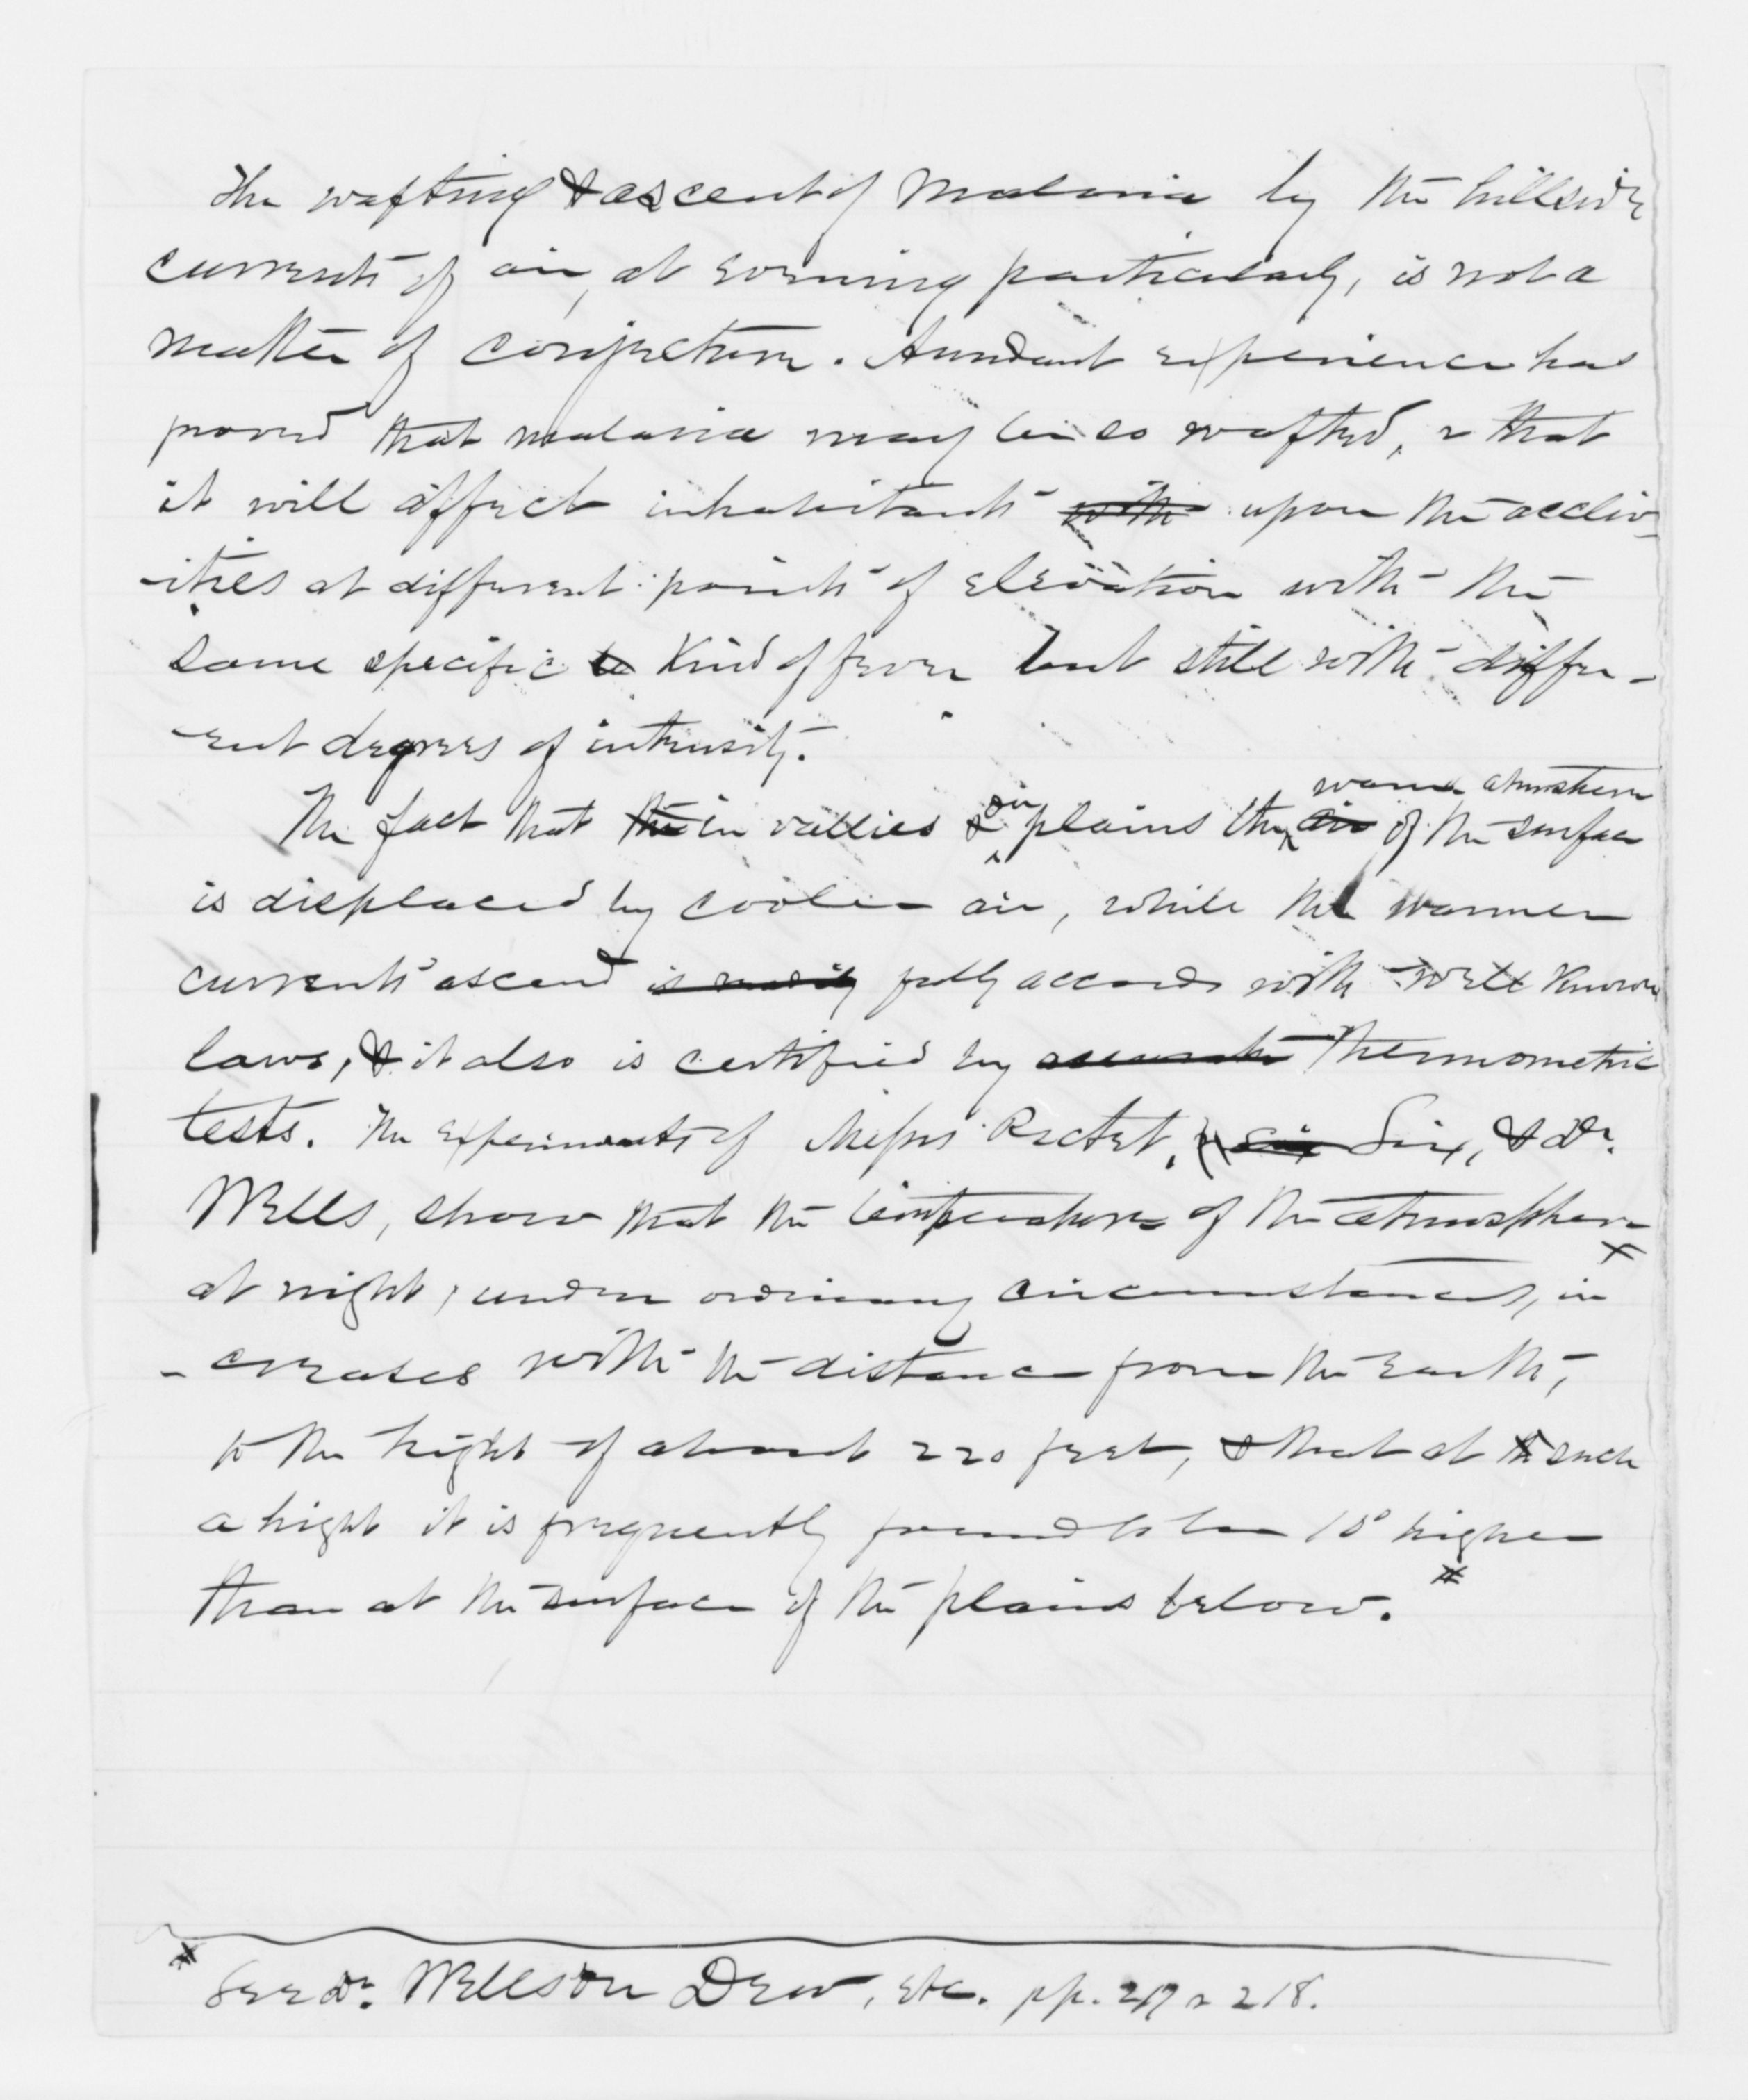 The wafting & ascent of malaria by the hillside
currents of air, at evening particularly, is not a
matter of conjecture. Aundant experience has
proved that malaria may be so wafted, & that
it will affect inhabitants with upon the accliv-
-ities at different points of elevation with the
same specific kind of fever but still with diffe-
-rent degrees of intensity.
warm atmosphere
The fact that the in vallies & in plains the air of the surface
is displaced by cooler air, while the warmer
currents ascend is readily fully accords with well known
laws, & it also is certified by accurate thermometric
tests. The experiments of Messrs Pictet, Six Six, & Dr.
Wells, show that the temperature of the atmosphere
at night, under ordinary circumstances, in
-creases with the distance from the earth,
to the hight of about 220 feet, & that at th such
a hight it is frequently found to be 10° higher
than at the surface of the plains below. *
* See Dr. Wells on Dew, etc. pp. 217 & 218.